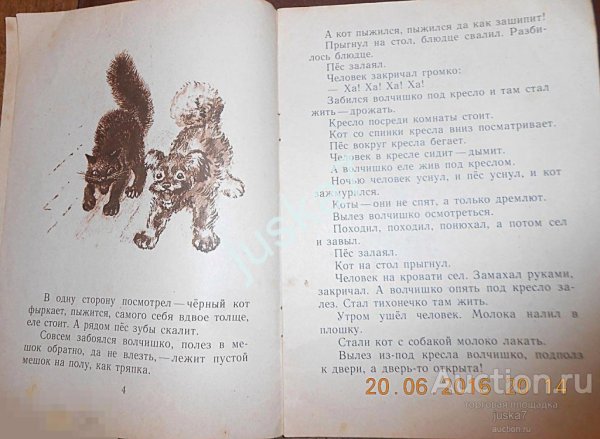 В одну сторону посмотрел — чёрный кот
фыркает, пыжится, самого себя вдвое толще,
еле стоит. А рядом пёс зубы скалит.
Совсем забоялся волчишко, полез в ме-
шок обратно, да не влезть, — лежит пустой
мешок на полу, как тряпка.
4
А кот пыжился, пыжился да как зашипит!
Прыгнул на стол, блюдце свалил. Разби-
лось блюдце.
Пёс залаял.
Человек закричал громко:
— Ха! Ха! Ха! Ха!
Забился волчишко под кресло и там стал
жить — дрожать.
Кресло посреди комнаты стоит.
Кот со спинки кресла вниз посматривает.
Пёс вокруг кресла бегает.
Человек в кресле сидит — дымит.
А волчишко еле жив под креслом.
Ночью человек уснул, и пёс уснул, и кот
зажмурился.
Коты — они не спят, а только дремлют.
Вылез волчишко осмотреться.
Походил, походил, понюхал, а потом сел
и завыл.
Пёс залаял.
Кот на стол прыгнул.
Человек на кровати сел. Замахал руками,
закричал. А волчишко опять под кресло за-
лез. Стал тихонечко там жить.
Утром ушёл человек. Молока налил в
плошку.
Стали кот с собакой молоко лакать.
Вылез из-под кресла волчишко, подполз
к двери, а дверь-то открыта!
20.06.2016 20:14
Auction.ru
торговая площадка
juska7
auction.ru
juska7